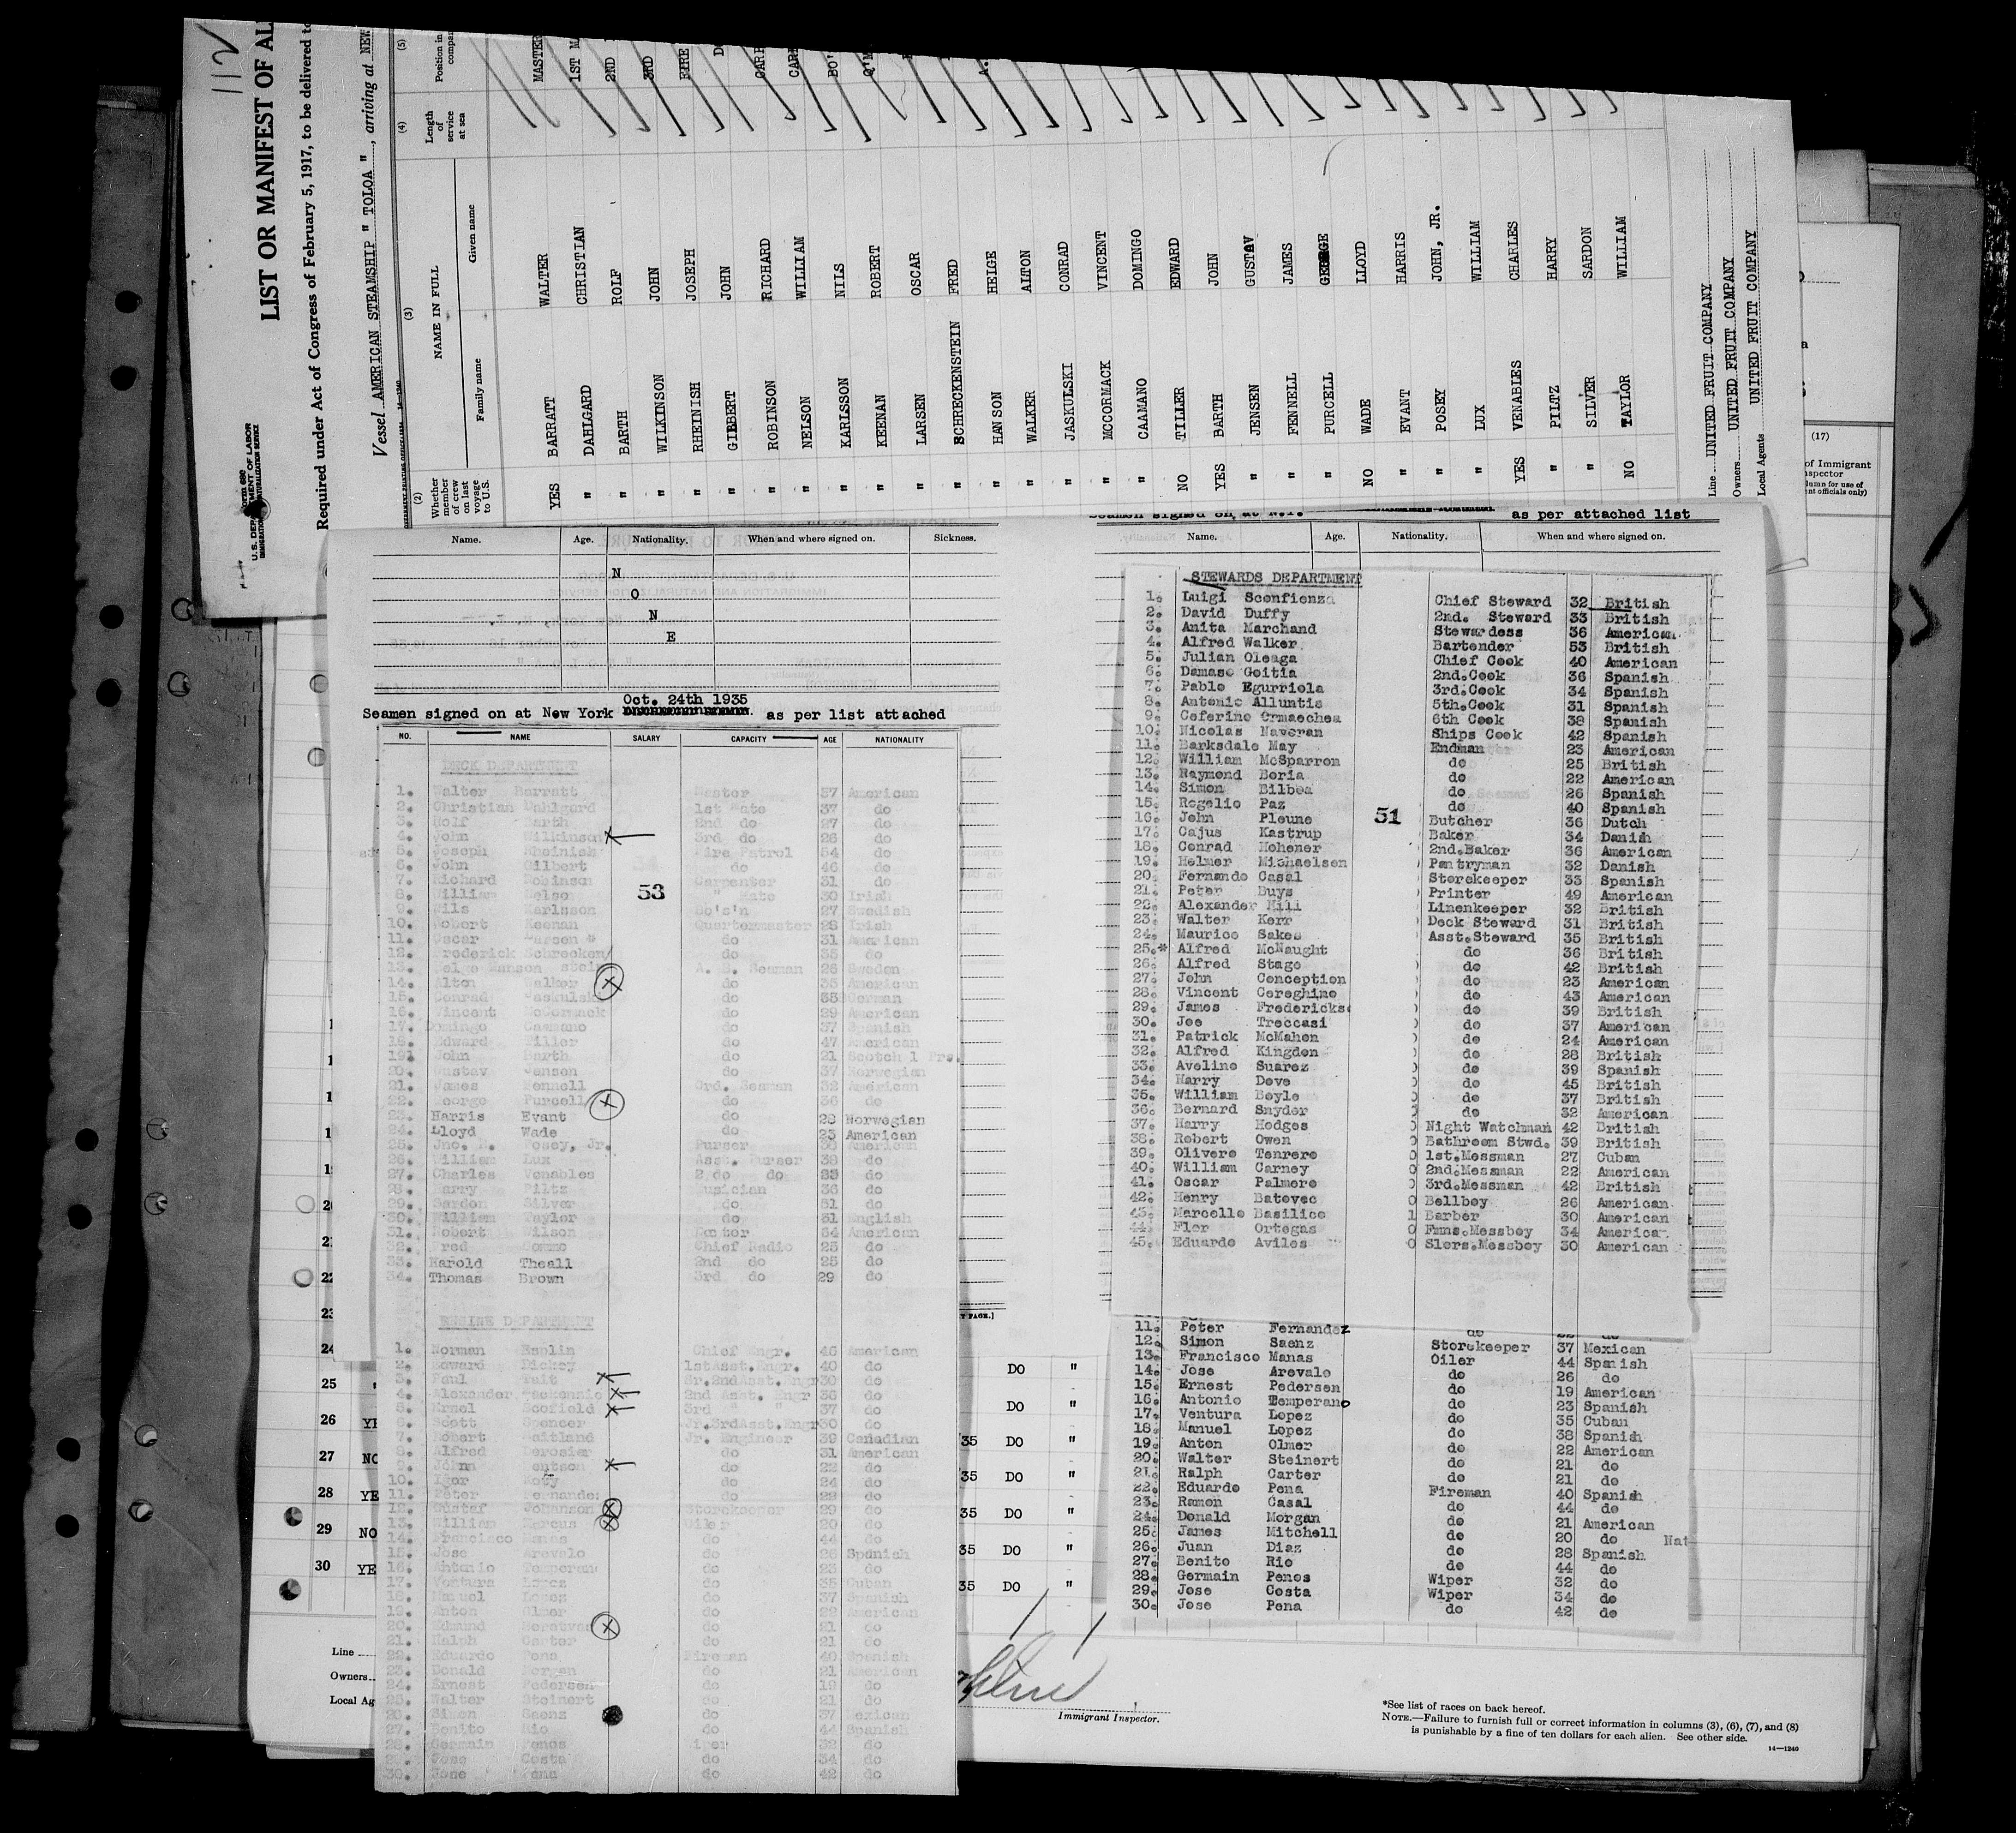 112
LIST OR MANIFEST OF AL
Required under Act of Congress of February 5, 1917, to be delivered to
Vessel AMERICAN STEAMSHIP " TOLOA ", arriving at NEW
U. S. DEPARTMENT OF LABOR
(2) (3) (4) (5)
Whether member of crew on last voyage to U.S.
NAME IN FULL
Family name Given name
Length of service at sea
Position in
YES BARRATT WALTER MASTER
" DAHLGARD CHRISTIAN 1ST M
" BARTH ROLF 2ND
" WILKINSON JOHN 3RD
" RHEINISH JOSEPH FIRE
" GILBERT JOHN
" ROBINSON RICHARD CARP
" NELSON WILLIAM CARP
" KARLSSON NILS BO'
" KEENAN ROBERT Q'M
" LARSEN OSCAR
" SCHRECKENSTEIN FRED
" HANSON HEIGE A.
" WALKER ALTON
" JASKULSKI CONRAD
" MCCORMACK VINCENT
" CAAMANO DOMINGO
NO TILLER EDWARD
YES BARTH JOHN
" JENSEN GUSTAV
" FENNELL JAMES
" PURCELL GEORGE
NO WADE LLOYD
" EVANT HARRIS
" POSEY JOHN, JR.
" LUX WILLIAM
YES VENABLES CHARLES
" PILTZ HARRY
" SILVER SARDON
NO TAYLOR WILLIAM
Line UNITED FRUIT COMPANY
Owners UNITED FRUIT COMPANY
Local Agents UNITED FRUIT COMPANY
(17)
of Immigrant
Name. Age. Nationality. When and where signed on. Sickness.
N
O
N
E
Oct. 24th 1935
Seamen signed on at New York as per list attached
NO. NAME SALARY CAPACITY AGE NATIONALITY
DECK DEPARTMENT
1. Walter Barratt Master 57 American
2. Christian Dahlgard 1st Mate 37 do
3. Rolf Barth 2nd do 27 do
4. John Wilkinson 3rd do 26 do
5. Joseph Rheinish Fire Patrol 54 do
6. John Gilbert do 46 do
7. Richard Robinson Carpenter 31 do
53
8. William Nelson Mate 30 Irish
9. Nils Karlsson Bo's'n 27 Swedish
10. Robert Keenan Quartermaster 28 Irish
11. Oscar Larsen do 31 American
12. Frederick Schrecken/ do 35 do
13. Helge Hanson stein A. B. Seaman 26 Sweden
14. Alton Walker do 36 American
15. Conrad Jaskulski do 35 German
16. Vincent McCormack do 29 American
17. Domingo Caamano do 37 Spanish
18. Edward Tiller do 47 American
19. John Barth do 21 Scotch 1 Pre.
20. Gustav Jensen do 37 Norwegian
21. James Fennell Ord. Seaman 32 American
22. George Purcell do 36 do
23. Harris Evant do 28 Norwegian
24. Lloyd Wade do 23 American
25. Jno. Posey, Jr. Purser 30 American
26. William Lux Asst. Purser 38 do
27. Charles Venables 2 do do 23 do
28. Harry Piltz Musician 36 do
29. Sardon Silver do 51 do
30. William Taylor do 31 English
31. Robert Wilson Doctor 54 American
32. Fred Chief Radio 25 do
33. Harold Theall 2nd do 25 do
34. Thomas Brown 3rd do 29 do
ENGINE DEPARTMENT
1. Norman Esplin Chief Engr. 45 American
2. Edward Dickey 1stAsst.Engr. 40 do
3. Paul Tait Sr.2ndAsst.Engr 30 do
4. Alexander Mackensie 2nd Asst. Engr 36 do
5. Ernel Scofield 3rd " " 37 do
6. Scott Spencer Jr.3rdAsst.Engr 30 do
7. Robert Maitland Jr. Engineer 39 Canadian
8. Alfred do 31 American
9. John do 22 do
10. Igor do 24 do
11. Peter Fernandez do 22 do
12. Gustaf Johanson Storekeeper 29 do
13. William Marcus Oiler 20 do
14. Francisco Manas do 44 do
15. Jose Arevalo do 26 Spanish
16. Antonio Temperano do 23 do
17. Ventura Lopez do 35 Cuban
18. Manuel Lopez do 37 Spanish
19. Anton Olmer do 22 American
20. Edmund do 21 do
21. Ralph Carter do 21 do
22. Eduardo Pena Fireman 40 Spanish
23. Donald Morgan do 21 American
24. Ernest Pedersen do 19 do
25. Walter Steinert do 21 do
26. Simon Saenz do 37 Mexican
27. Benito Rio do 44 Spanish
28. Germain Penos Wiper 32 do
29. Jose Costa do 34 do
30. Jose Pena do 42 do
Seamen signed on at N.Y. as per attached list
Name. Age. Nationality. When and where signed on.
STEWARDS DEPARTMENT
1. Luigi Sconfienza Chief Steward 32 British
2. David Duffy 2nd. Steward 33 British
3. Anita Marchand Stewardess 36 American
4. Alfred Walker Bartender 53 British
5. Julian Oleaga Chief Cook 40 American
6. Damaso Goitia 2nd.Cook 36 Spanish
7. Pablo Egurriola 3rd.Cook 34 Spanish
8. Antonio Alluntis 5th.Cook 31 Spanish
9. Ceferino Ormaechea 6th Cook 38 Spanish
10. Nicolas Naveran Ships Cook 42 Spanish
11. Barksdale May Endman 23 American
12. William McSparron do 25 British
13. Raymond Boria do 22 American
14. Simon Bilbea do 26 Spanish
15. Rogelio Paz do 40 Spanish
51
16. John Pleune Butcher 36 Dutch
17. Cajus Kastrup Baker 34 Danish
18. Conrad Hohener 2nd.Baker 36 American
19. Helmer Michaelsen Pantryman 32 Danish
20. Fernando Casal Storekeeper 33 Spanish
21. Peter Buys Printer 49 American
22. Alexander Mili Linenkeeper 32 British
23. Walter Kerr Deck Steward 31 British
24. Maurice Sakes Asst.Steward 35 British
25.* Alfred McNaught do 36 British
26. Alfred Stage do 42 British
27. John Conception do 23 American
28. Vincent Cereghino do 43 American
29. James Fredericks do 39 British
30. Joe Treccasi do 37 American
31. Patrick McMahon do 24 American
32. Alfred Kingdon do 28 British
33. Aveline Suarez do 39 Spanish
34. Harry Dove do 45 British
35. William Boyle do 37 British
36. Bernard Snyder do 32 American
37. Harry Hodges Night Watchman 42 British
38. Robert Owen Bathroom Stwd. 39 British
39. Olivero Tenrero 1st.Messman 27 Cuban
40. William Carney 2nd.Messman 22 American
41. Oscar Palmore 3rd.Messman 42 British
42. Henry Batovec Bellboy 26 American
43. Marcello Basilico Barber 30 American
44. Flor Ortegas Fmns.Messboy 34 America
45. Eduardo Aviles Slors.Messboy 30 American
11. Peter Fernandez do 22 do
12. Simon Saenz Storekeeper 37 Mexican
13. Francisco Manas Oiler 44 Spanish
14. Jose Arevalo do 26 do
15. Ernest Pedersen do 19 American
16. Antonio Temperano do 23 Spanish
17. Ventura Lopez do 35 Cuban
18. Manuel Lopez do 38 Spanish
19. Anton Olmer do 22 American
20. Walter Steinert do 21 do
21. Ralph Carter do 21 do
22. Eduardo Pena Fireman 40 Spanish
23. Ramon Casal do 44 do
24. Donald Morgan do 21 American
25. James Mitchell do 20 do
26. Juan Diaz do 28 Spanish
27. Benito Rio do 44 do
28. Germain Penos Wiper 32 do
29. Jose Costa Wiper 34 do
30. Jose Pena do 42 do
22
23
24 DO "
25 DO "
26 YE 35 DO "
27 NO 35 DO "
28 YE 35 DO "
29 NO 35 DO "
30 YE 35 DO "
Line
Owners
Local Ag
Immigrant Inspector.
*See list of races on back hereof.
NOTE.—Failure to furnish full or correct information in columns (3), (6), (7), and (8)
is punishable by a fine of ten dollars for each alien. See other side.
14—1240